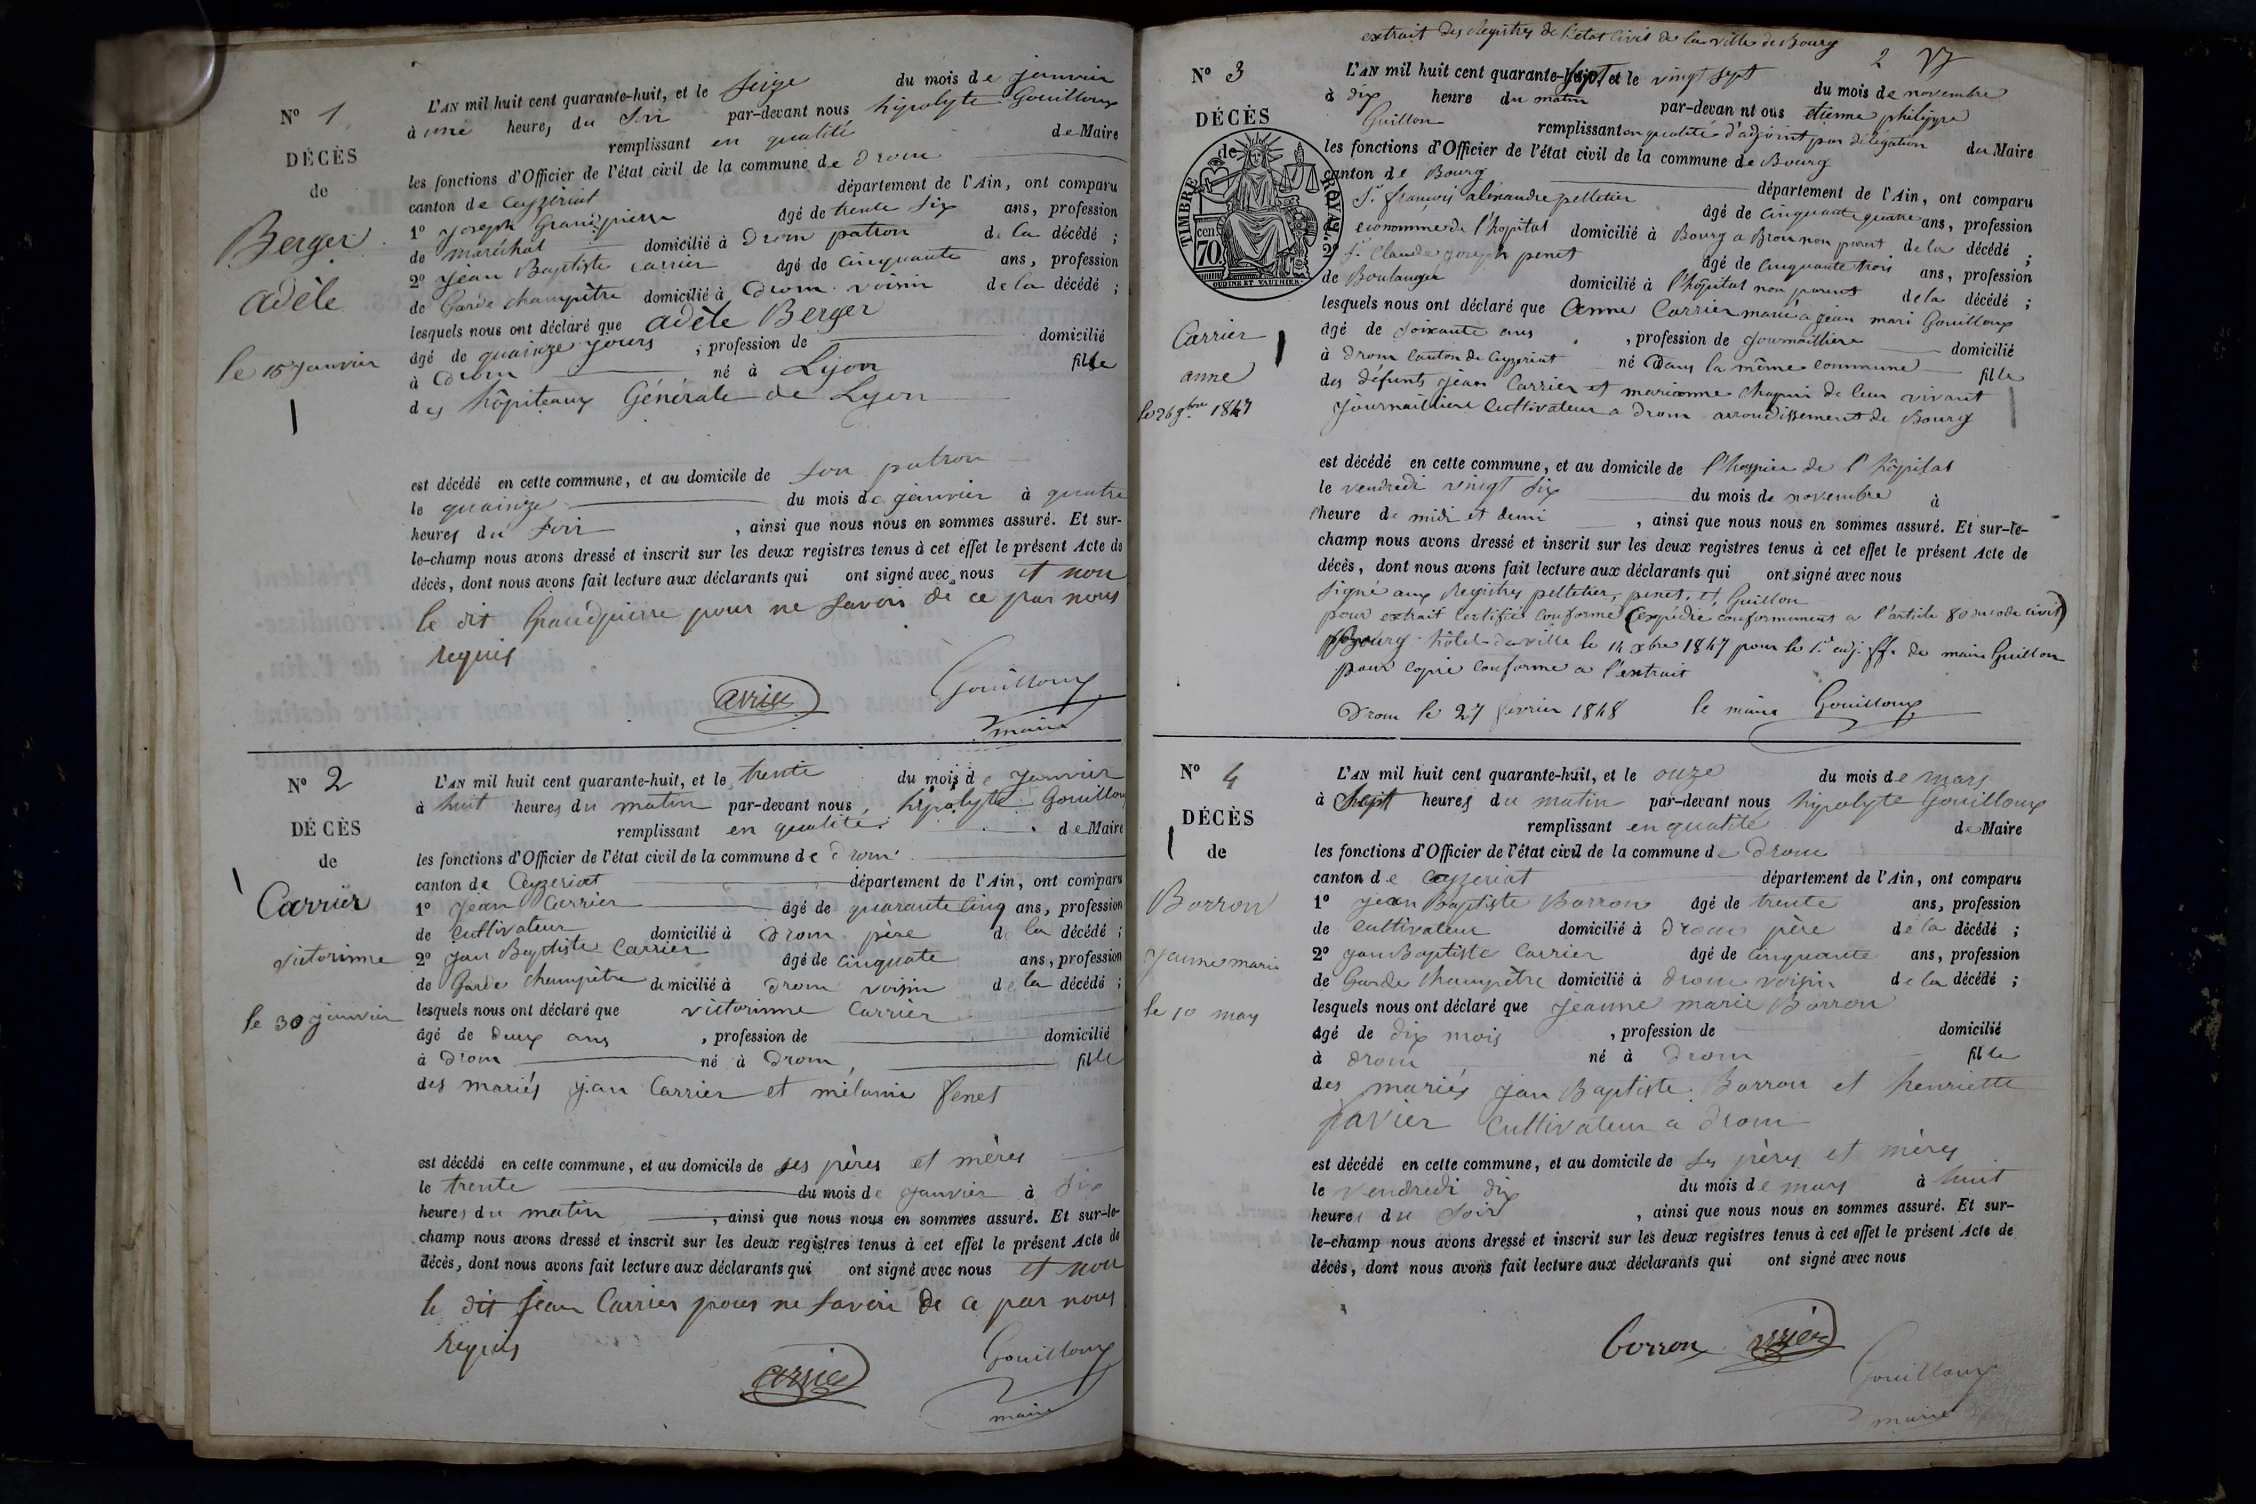 N° 1
DÉCÈS
de
Berger
adèle
le 15 janvier
L'AN mil huit cent quarante-huit, et le seize du mois de janvier
à une heure, du soir par-devant nous hipolyte Gouilloux
remplissant en qualité de Maire
les fonctions d'Officier de l'état civil de la commune de Drom
canton de Ceyzeriat département de l'Ain, ont comparu
1° joseph Grandpierre âgé de trente six ans, profession
de maréchal domicilié à Drom patron de la décédé ;
2° jean Baptiste Carrier âgé de cinquante ans, profession
de Garde champètre domicilié à Drom voisin de la décédé ;
lesquels nous ont déclaré que adèle Berger
âgé de quainze jours ; profession de domicilié
à Drom né à Lyon fille
des hôpiteaux Générale de Lyon
est décédé en cette commune, et au domicile de son patron
le quainze du mois de janvier à quatre
heures du soir , ainsi que nous nous en sommes assuré. Et sur-
le-champ nous avons dressé et inscrit sur les deux registres tenus à cet effet le présent Acte de
décès, dont nous avons fait lecture aux déclarants qui ont signé avec nous et non
le dit Grandpierre pour ne savoir de ce par nous
requis
Carrier Gouilloux
maire
N° 2
DÉCÈS
de
Carrier
victorinne
le 30 janvier
L'AN mil huit cent quarante-huit, et le trente du mois de janvier
à huit heures du matin par-devant nous hipolyte Gouilloux
remplissant en qualité de Maire
les fonctions d'Officier de l'état civil de la commune de Drom
canton de Ceyzeriat département de l'Ain, ont comparu
1° jean Carrier âgé de quarante cinq ans, profession
de cultivateur domicilié à Drom père de la décédé ;
2° jean Baptiste Carrier âgé de cinquate ans, profession
de Garde champètre domicilié à Drom voisin de la décédé ;
lesquels nous ont déclaré que victorinne Carrier
âgé de deux ans , profession de domicilié
à Drom né à Drom fille
des mariés jean Carrier et mélanie
est décédé en cette commune, et au domicile de ses pères et mères
le trente du mois de janvier à six
heures du matin , ainsi que nous nous en sommes assuré. Et sur-le-
champ nous avons dressé et inscrit sur les deux registres tenus à cet effet le présent Acte de
décès, dont nous avons fait lecture aux déclarants qui ont signé avec nous et non
le dit jean Carrier pour ne savoir de ce par nous
requis
Carrier Gouilloux
maire
extrait des Registres de l'état civil de la ville de Bourg
2
N° 3
DÉCÈS
de
TIMBRE ROYAL
cen 70
OUDINE ET VAUTHIER
Carrier
anne
le 26 9bre 1847
L'AN mil huit cent quarante-sept, et le vingt sept du mois de novembre
à dix heure du matin par-devant nous étienne philippe
Guillon remplissant en qualité d'adjoint par délégation du Maire
les fonctions d'Officier de l'état civil de la commune de Bourg
canton de Bourg département de l'Ain, ont comparu
Sr françois alexandre pelletier âgé de cinquante quatre ans, profession
economme de l'hôpital domicilié à Bourg a Brou non parent de la décédé ;
2° Sr Claude joseph penet âgé de cinquante trois ans, profession
de Boulanger domicilié à l'hôpital non parent de la décédé ;
lesquels nous ont déclaré que Anne Carrier marié a jean mari Gouilloux
âgé de soixante ans , profession de journaillière domicilié
à Drom canton de Ceyzeriat né Dans la même commune fille
des défunts jean Carrier et marianne de leur vivant
journaillière cultivateur a Drom arrondissement de Bourg
est décédé en cette commune, et au domicile de l'hospice de l'hôpital
le vendredi vingt six du mois de novembre à
heure de midi et demi , ainsi que nous nous en sommes assuré. Et sur-le-
champ nous avons dressé et inscrit sur les deux registres tenus à cet effet le présent Acte de
décès, dont nous avons fait lecture aux déclarants qui ont signé avec nous
signé aux Registres pelletier, penet, et Guillon
pour extrait certifié conforme (expédié conformement a l'article 80 du code civil)
Bourg hôtel de ville le 14 xbre 1847 pour le 1er adj. ff. de maire Guillon
pour copie conforme a l'extrait
Drom le 27 février 1848 le maire Gouilloux
N° 4
DÉCÈS
de
Borron
jeanne marie
le 10 mars
L'AN mil huit cent quarante-huit, et le onze du mois de mars
à sept heures du matin par-devant nous hipolyte Gouilloux
remplissant en qualité de Maire
les fonctions d'Officier de l'état civil de la commune de Drom
canton de Ceyzeriat département de l'Ain, ont comparu
1° jean Baptiste Borron âgé de trente ans, profession
de cultivateur domicilié à Drom père de la décédé ;
2° jean Baptiste Carrier âgé de cinquante ans, profession
de Garde champètre domicilié à Drom voisin de la décédé ;
lesquels nous ont déclaré que jeanne marie Borron
âgé de dix mois , profession de domicilié
à Drom né à Drom fille
des mariés jean Baptiste Borron et henriette
favier cultivateur a Drom
est décédé en cette commune, et au domicile de ses pères et mères
le vendredi dix du mois de mars à huit
heures du soir , ainsi que nous nous en sommes assuré. Et sur-
le-champ nous avons dressé et inscrit sur les deux registres tenus à cet effet le présent Acte de
décès, dont nous avons fait lecture aux déclarants qui ont signé avec nous
borron Carrier
Gouilloux
maire